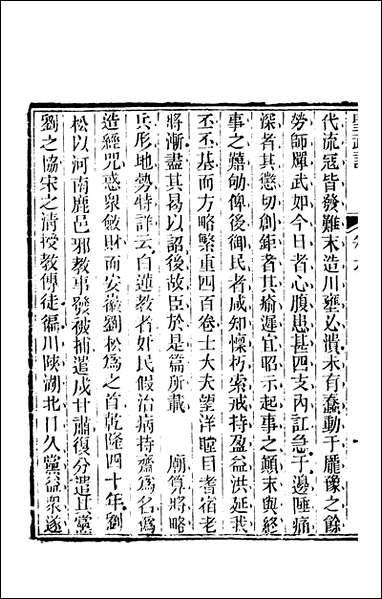 代流寇皆發難末造川壅必潰未有蠢動于龐豫之餘
勞師殫武如今日者心腹患甚四支內訌急于邊陲痛
深者其懲切創鉅者其瘉遲宜昭示起事之顛末與終
事之嬉劬俾後御民者咸知懔朽索戒持盈益洪延我
丕丕基而方略繁重四百卷士大夫望洋瞠目耆宿老
將漸盡其曷以詔後故臣於是篇所載　廟算將略
兵形地勢特詳云白蓮教者奸民假治病持齋爲名僞
造經咒惑衆斂財而安徽劉松爲之首乾隆四十年劉
松以河南鹿邑邪教事發被捕遣戍甘肅復分遣其黨
劉之協宋之清授教傳徒徧川陝湖北日久黨益衆遂